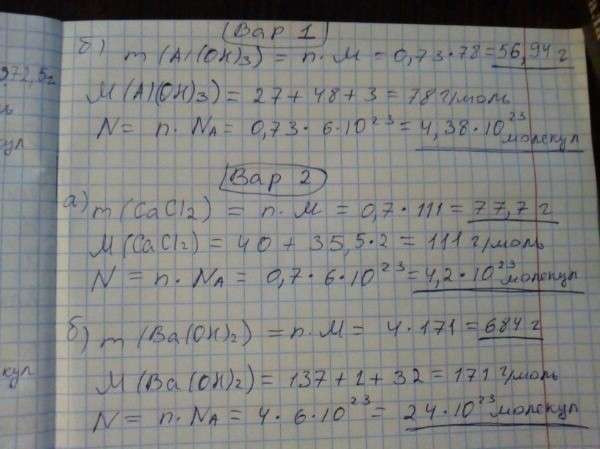 Вар 1
б) m (Al(OH)3) = n · M = 0,73 · 78 = 56,94 г
M (Al(OH)3) = 27 + 48 + 3 = 78 г/моль
N = n · NA = 0,73 · 6 · 10^23 = 4,38 · 10^23 молекул
Вар 2
а) m (CaCl2) = n · M = 0,7 · 111 = 77,7 г
M (CaCl2) = 40 + 35,5 · 2 = 111 г/моль
N = n · NA = 0,7 · 6 · 10^23 = 4,2 · 10^23 молекул
б) m (Ba(OH)2) = n · M = 4 · 171 = 684 г
M (Ba(OH)2) = 137 + 2 + 32 = 171 г/моль
N = n · NA = 4 · 6 · 10^23 = 24 · 10^23 молекул